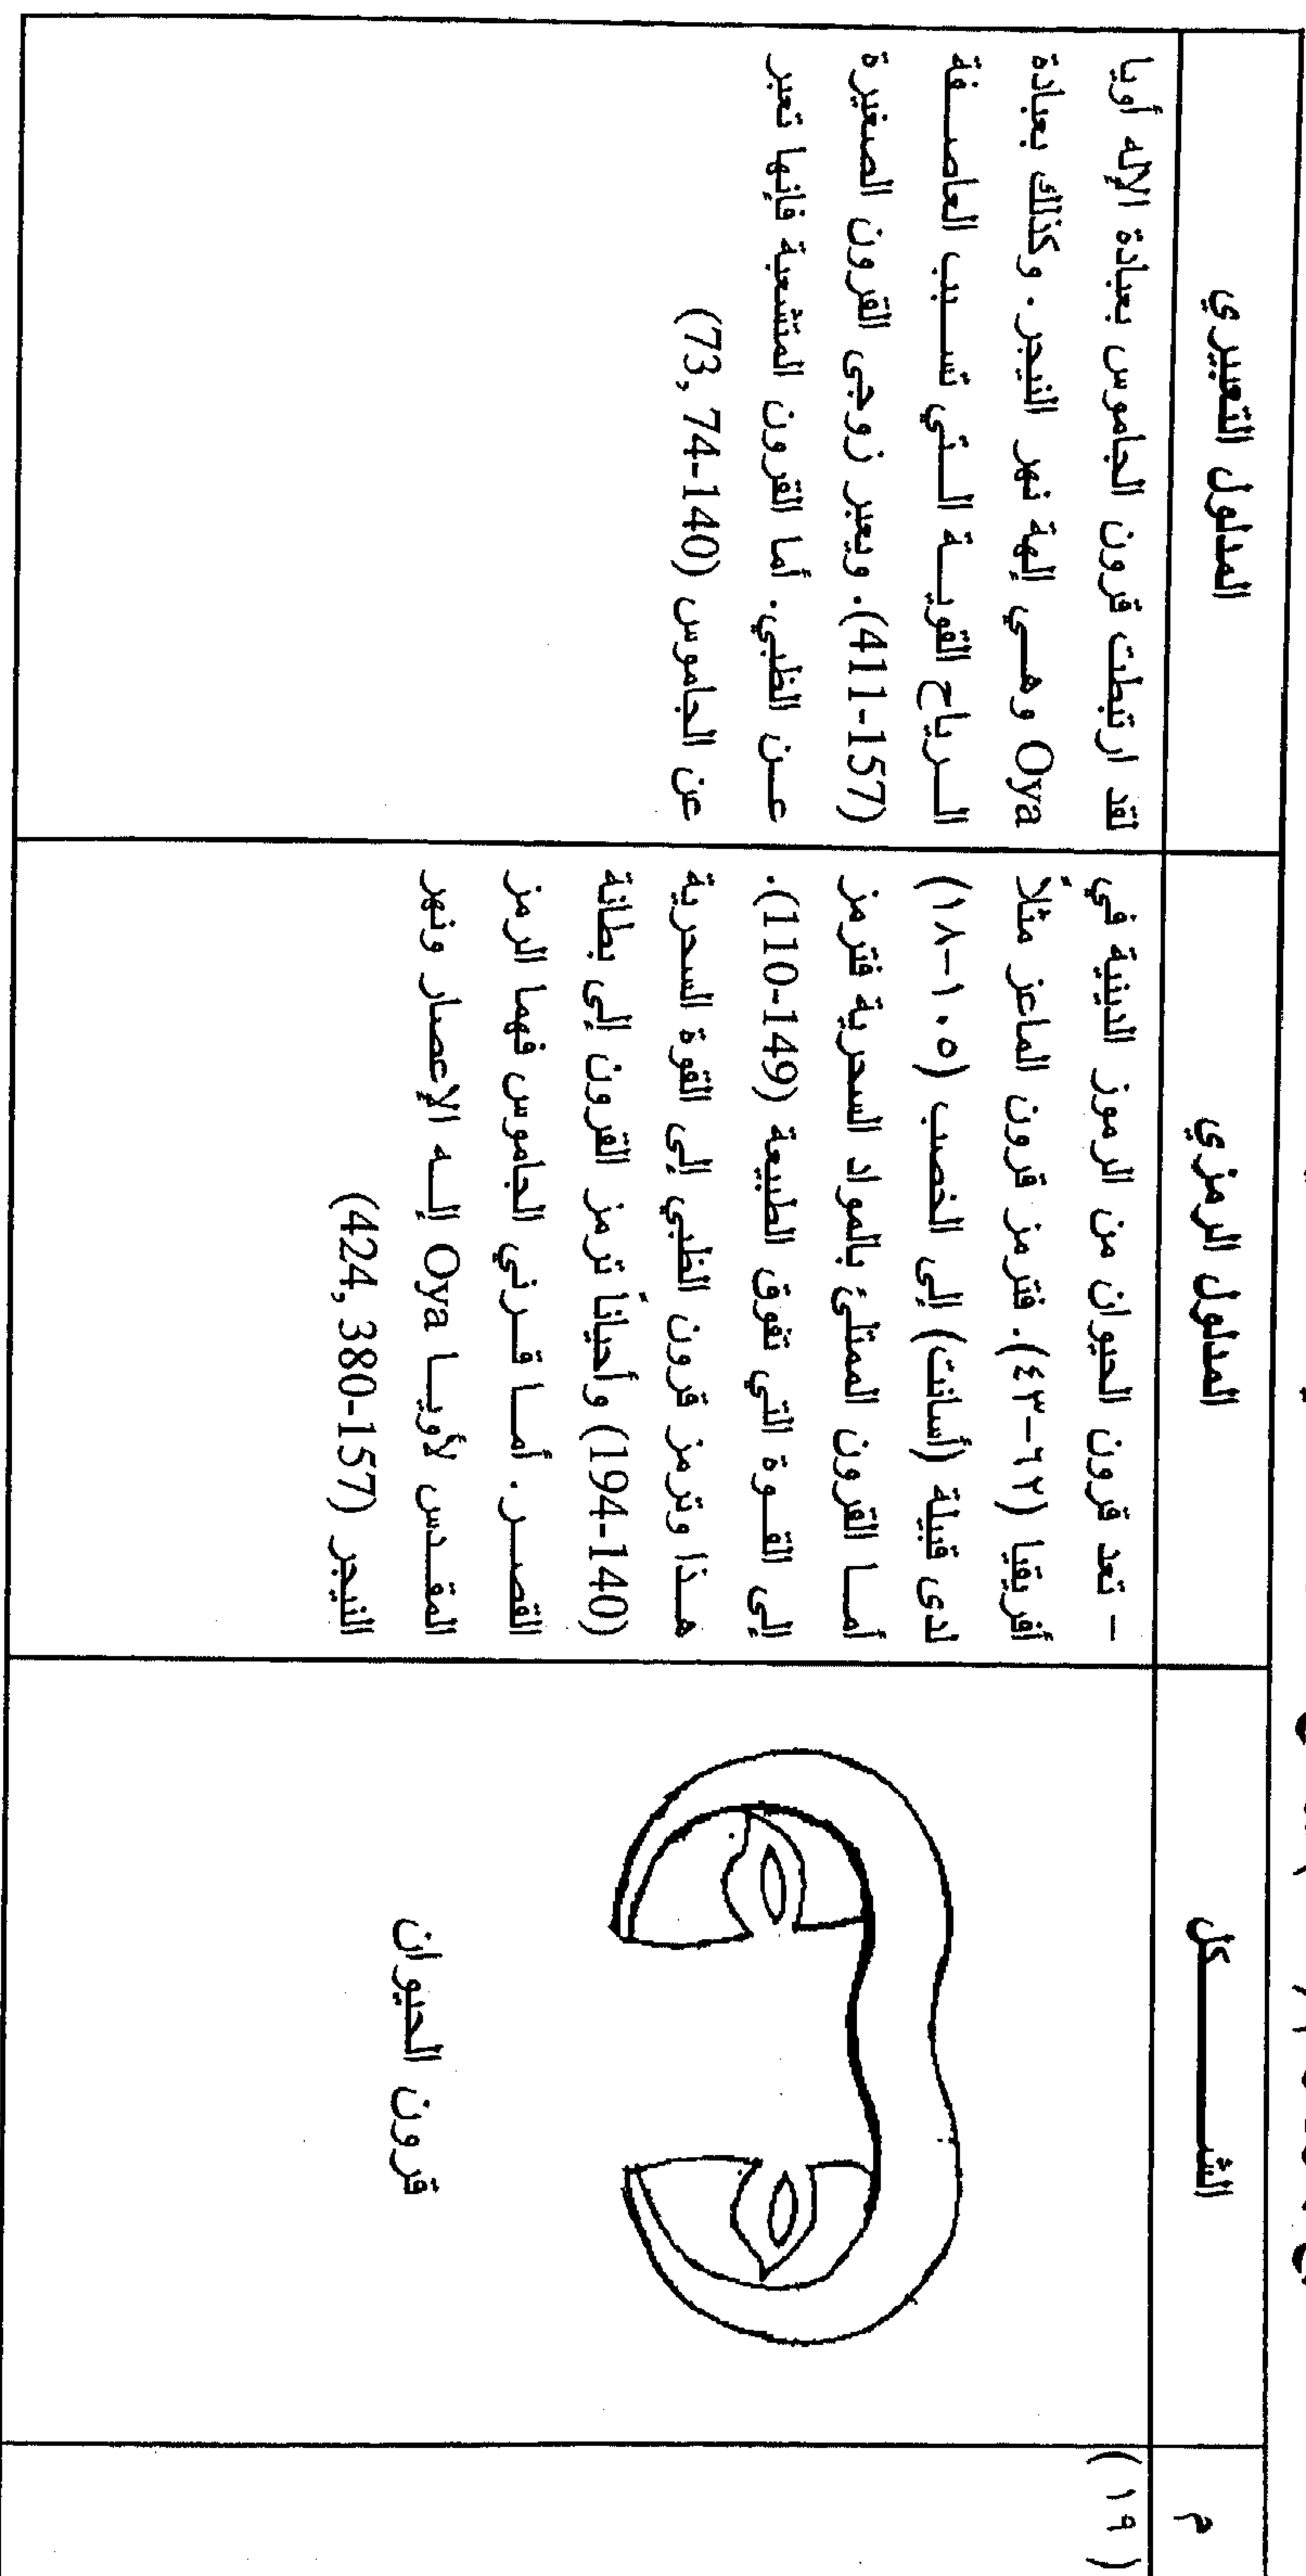 م
الشــــــكل
المدلول الرمزي
المدلول التعبيري
(١٩)
قرون الحيوان
– تعد قرون الحيوان من الرموز الدينية في
أفريقيا (٦٢-٤٣). فترمز قرون الماعز مثلاً
لدى قبيلة (أسانت) إلى الخصب (١٠٥-١٨)
أما القرون الممتلئ بالمواد السحرية فترمز
إلى القوة التي تفوق الطبيعة (110-149).
هذا وترمز قرون الظبي إلى القوة السحرية
(194-140) وأحياناً ترمز القرون إلى بطانة
القصر. أما قرني الجاموس فهما الرمز
المقدس لأويا Oya إله الإعصار ونهر
النيجر (424, 380-157)
لقد ارتبطت قرون الجاموس بعبادة الإله أويا
Oya وهي إلهة نهر النيجر. وكذلك بعبادة
الرياح القوية التي تسبب العاصفة
(411-157). ويعبر زوجى القرون الصغيرة
عن الظبي. أما القرون المتشعبة فإنها تعبر
عن الجاموس (73, 74-140)